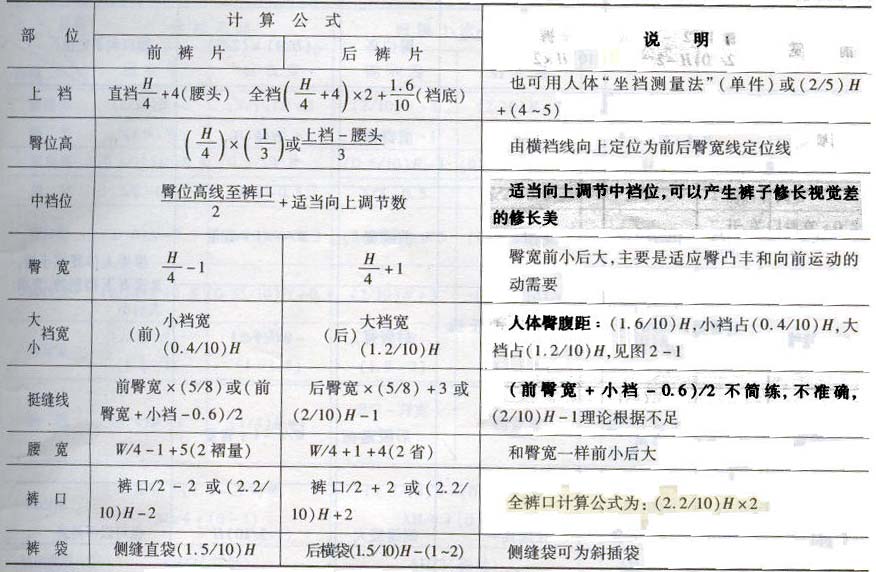 部 位
计 算 公 式
前 裤 片
后 裤 片
说 明
上 裆
直裆H/4+4(腰头) 全裆(H/4+4)×2+1.6/10(裆底)
也可用人体“坐裆测量法”(单件)或(2/5)H
+(4~5)
臀位高
(H/4)×(π/3)或上裆-腰头/3
由横裆线向上定位为前后臀宽线定位线
中裆位
臀位高线至裤口/2+适当向上调节数
适当向上调节中裆位,可以产生裤子修长视觉差
的修长美
臀 宽
H/4-1
H/4+1
臀宽前小后大,主要是适应臀凸丰和向前运动的
动需要
大
小 裆宽
(前) 小裆宽
(0.4/10)H
(后) 大裆宽
(1.2/10)H
人体臀腹距:(1.6/10)H,小裆占(0.4/10)H,大
裆占(1.2/10)H,见图2-1
挺缝线
前臀宽×(5/8)或(前
臀宽+小裆-0.6)/2
后臀宽×(5/8)+3或
(2/10)H-1
(前臀宽+小裆-0.6)/2不简练,不准确,
(2/10)H-1理论根据不足
腰 宽
W/4-1+5(2褶量)
W/4+1+4(2省)
和臀宽一样前小后大
裤 口
裤口/2-2或(2.2/
10)H-2
裤口/2+2或(2.2/
10)H+2
全裤口计算公式为:(2.2/10)H×2
裤 袋
侧缝直袋(1.5/10)H
后横袋(1.5/10)H-(1~2)
侧缝袋可为斜插袋